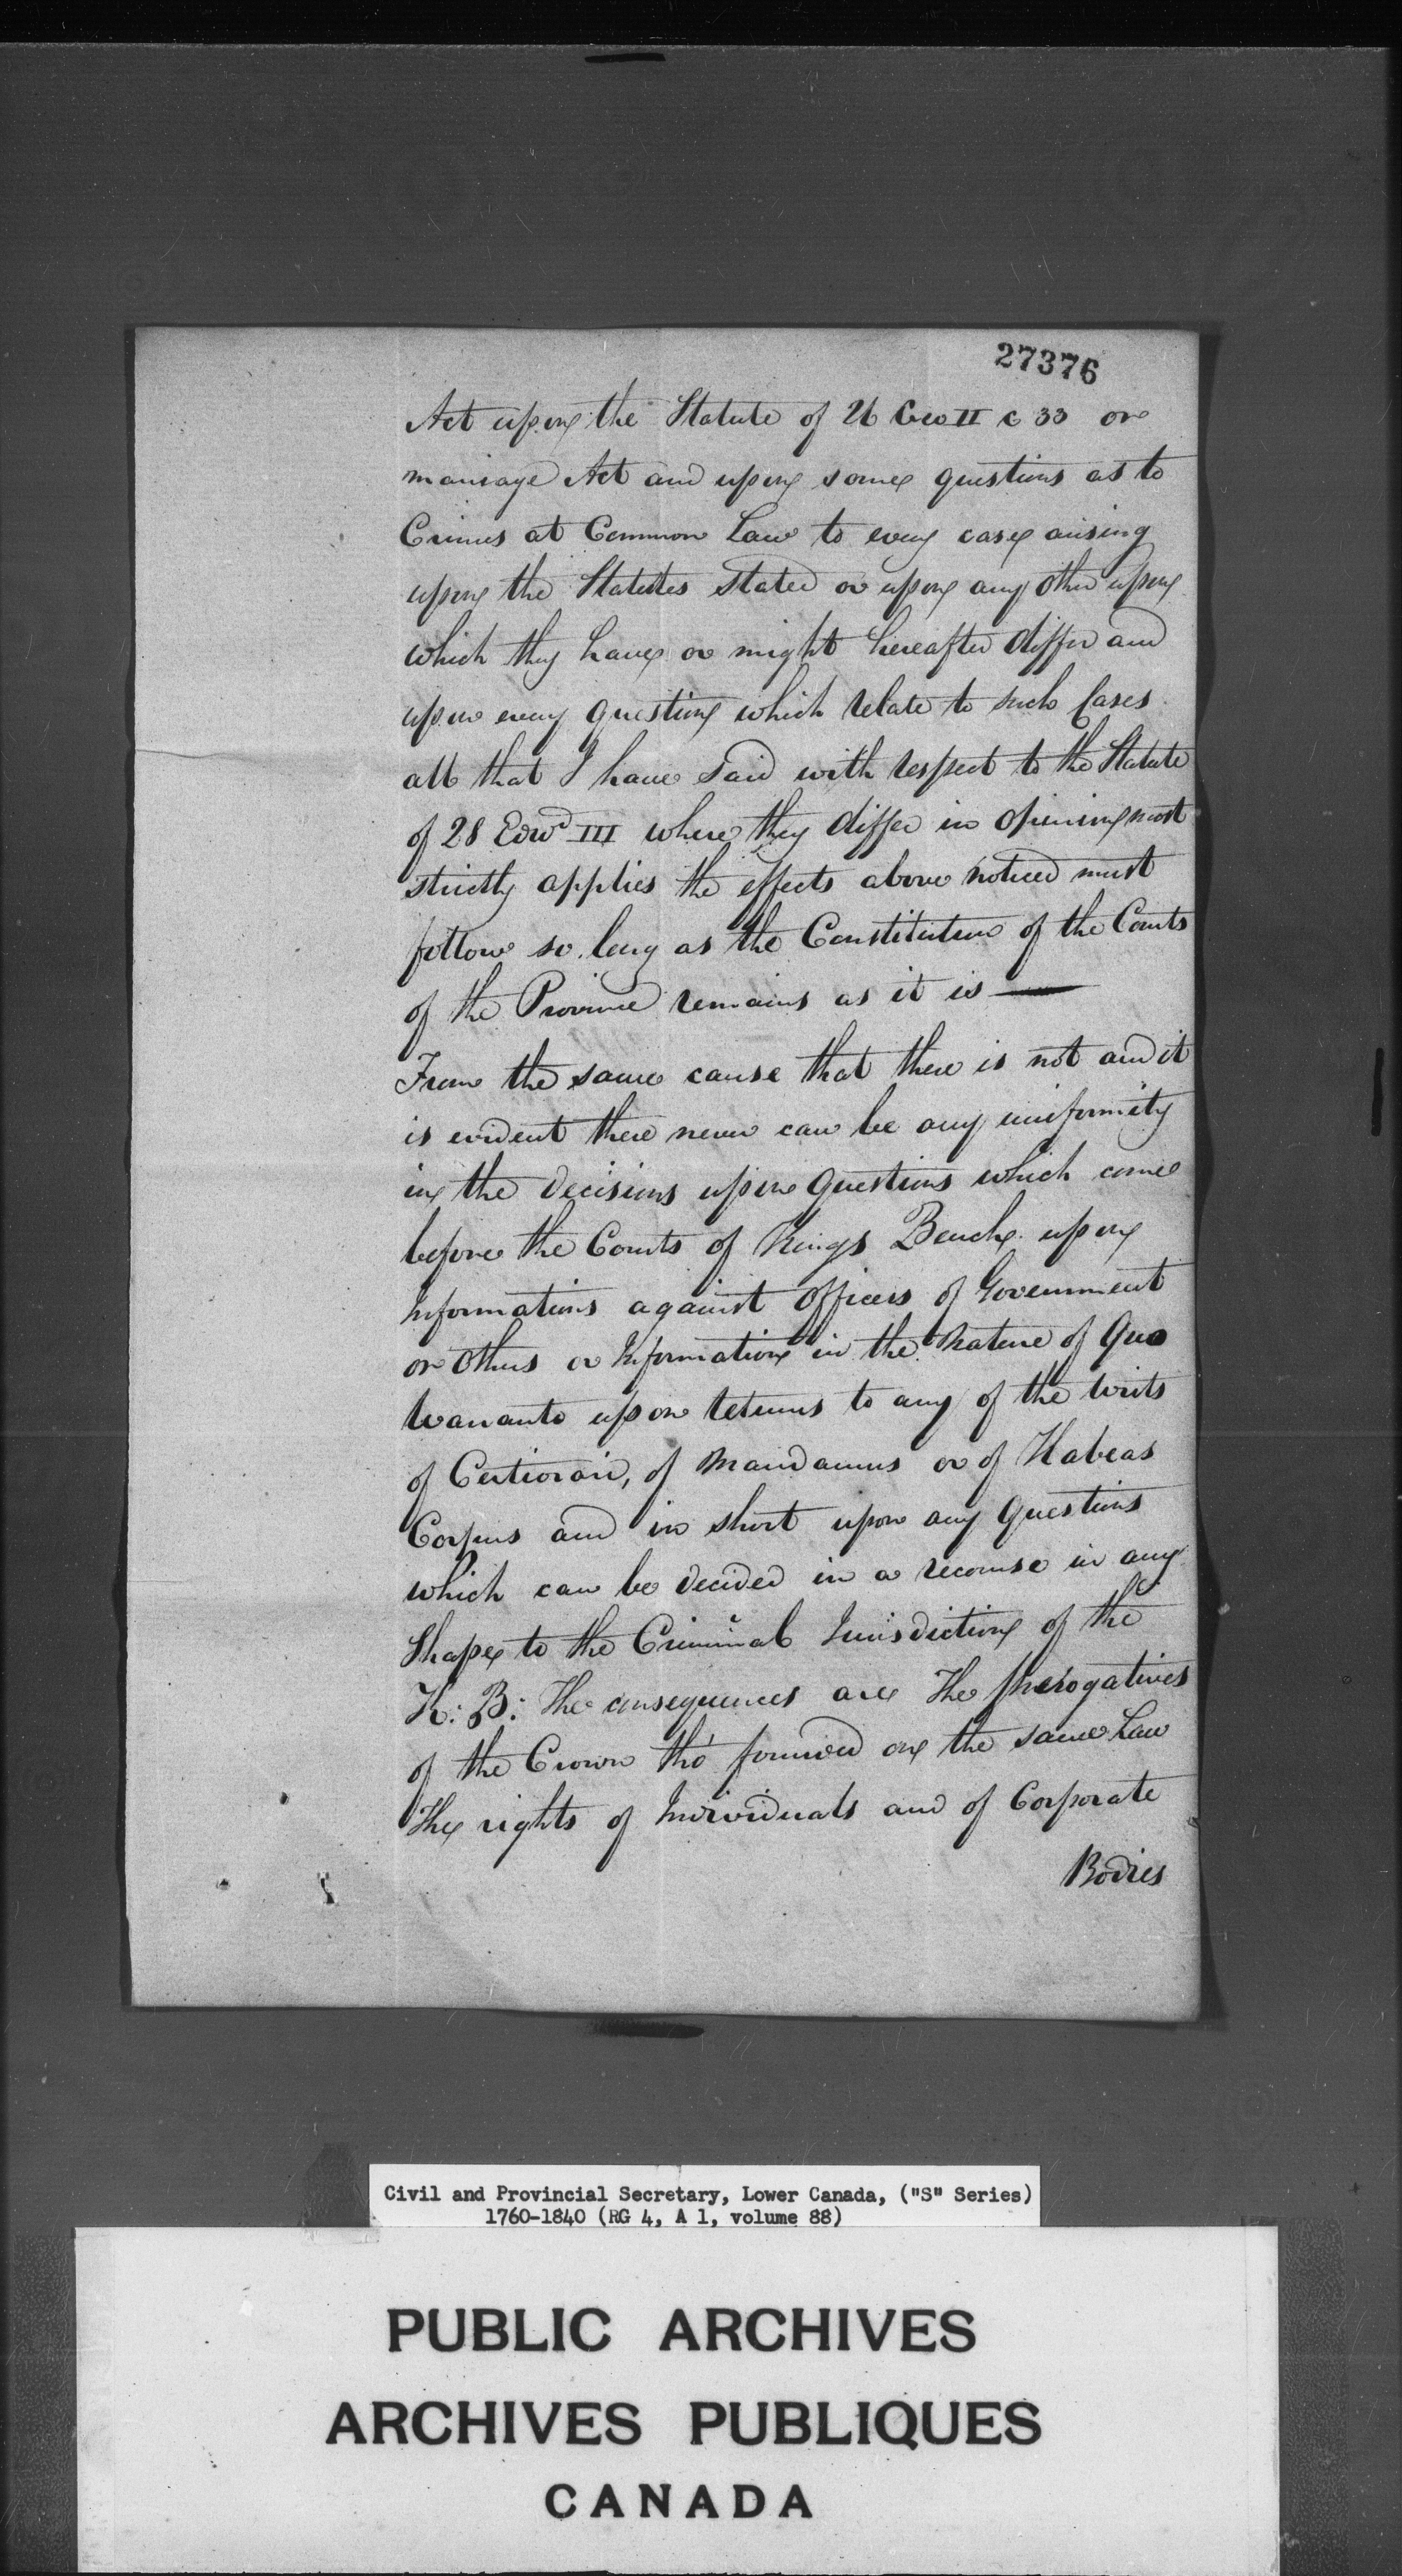 27376
Act upon the Statute of 26 Geo II c 33 or
marriage Act and upon some questions as to
Crimes at Common Law to every case arising
upon the Statutes stated or upon any other upon
which they have or might hereafter differ and
upon every question which relate to such Cases
all that I have said with respect to the Statute
of 28 Edwd III where they differ in opinion most
strictly applies the effects above noticed must
follow so long as the Constitution of the Courts
of the Province remains as it is —
From the same cause that there is not and it
is evident there never can be any uniformity
in the decisions upon questions which come
before the Courts of Kings Bench upon
Informations against Officers of Government
or others or Information in the Nature of Quo
Warranto upon returns to any of the Writs
of Certiorari, of Mandamus or of Habeas
Corpus and in short upon any Questions
which can be decided in a recourse in any
Shape to the Criminal Jurisdiction of the
K: B: The consequences are The prerogatives
of the Crown tho' founded on the same Law
The rights of Individuals and of Corporate
Bodies
Civil and Provincial Secretary, Lower Canada, ("S" Series)
1760-1840 (RG 4, A 1, volume 88)
PUBLIC ARCHIVES
ARCHIVES PUBLIQUES
CANADA